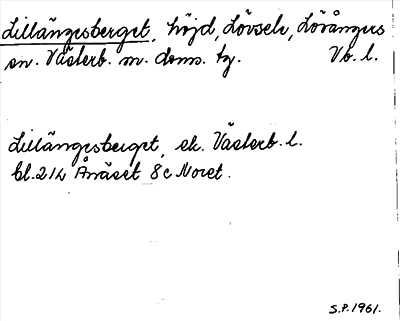 Lillängesberget, höjd, Lövsele, Lövångers
sn. Västerb. m. doms. tg. Vb. l.
Lillängesberget, ek. Västerb. l.
bl. 214 Ånäset 8c Noret.
S.P. 1961.